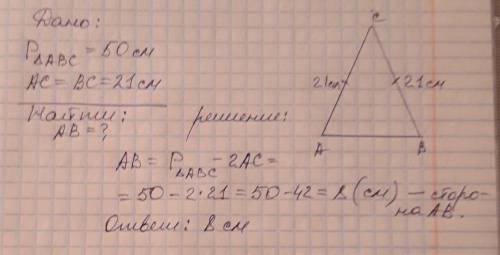 Дано:
P△ABC = 50 см
AC = BC = 21 см
Найти:
AB = ?
решение:
C
21см
21см
A
B
AB = P△ABC - 2AC =
= 50 - 2·21 = 50 - 42 = 8 (см) — сторо-
на AB.
Ответ: 8 см